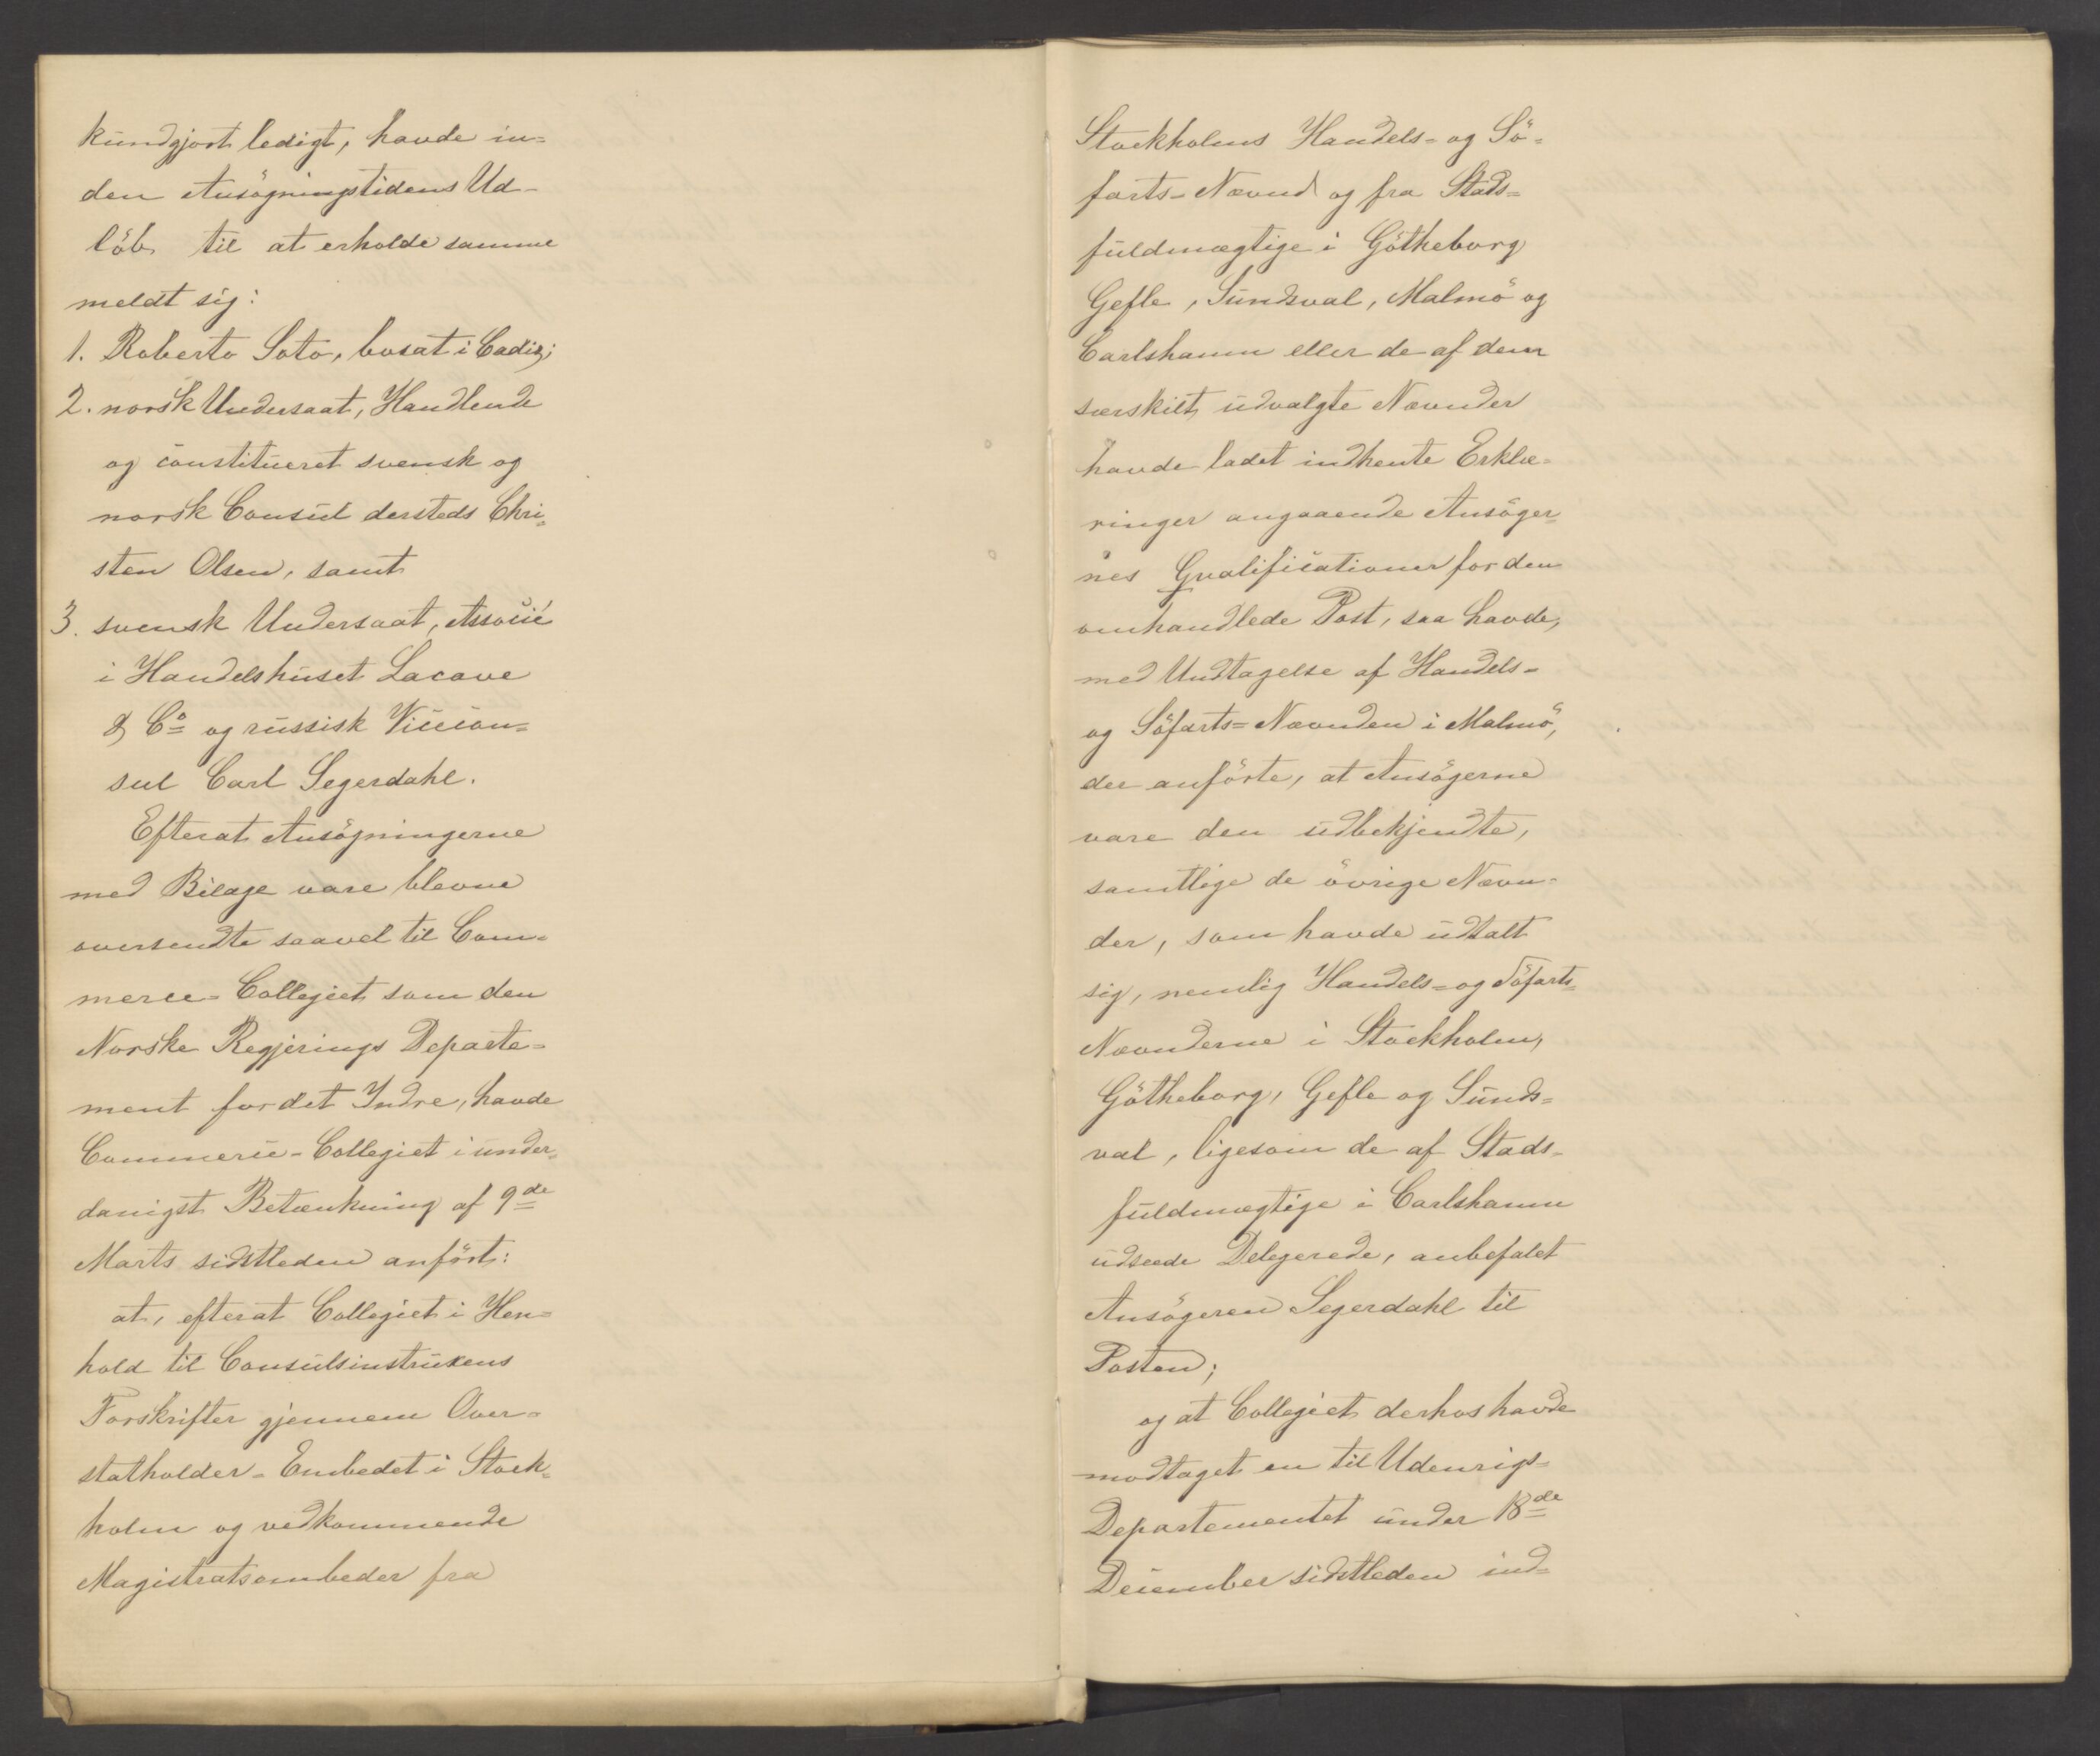 kundgjort ledigt, havde in-
den Ansögningstidens Ud-
löb til at erholde samme
meldt sig:
1. Roberto Soto, bosat i Cadiz;
2. norsk Undersaat, Handlende
og constitueret svensk og
norsk Consul dersteds Chri-
sten Olsen, samt
3. svensk Undersaat, Associé
i Handelshuset Lacave
& Co og russisk Vicecon-
sul Carl Segerdahl.
Efterat Ansögningerne
med Bilage vare blevne
oversendte saavel til Com-
merce-Collegiet som den
Norske Regjerings Departe-
ment for det Indre, havde
Commerce-Collegiet i under-
danigst Betænkning af 9de
Marts sidstleden anfört:
at, efterat Collegiet i Hen-
hold til Consulsinstruxens
Forskrifter gjennem Over-
statholder-Embedet i Stock-
holm og vedkommende
Magistratsembeder fra
Stockholms Handels- og Sö-
farts-Nævnd og fra Stads-
fuldmægtige i Götheborg
Gefle, Sundsval, Malmö og
Carlshamn eller de af dem
særskilt udvalgte Nævnder
havde ladet indhente Erklæ-
ringer angaaende Ansöger-
nes Qvalificationer for den
omhandlede Post, saa havde,
med Undtagelse af Handels-
og Söfarts-Nævnden i Malmö,
der anförte, at Ansögerne
vare den udbekjendte,
samtlige de övrige Nævn-
der, som havde udtalt
sig, nemlig Handels- og Söfarts-
Nævnderne i Stockholm,
Götheborg, Gefle og Sunds-
val, ligesom de af Stads-
fuldmægtige i Carlshamn
udseede Delegerede, anbefalet
Ansögeren Segerdahl til
Posten;
og at Collegiet derhos havde
modtaget en til Udenrigs-
Departementet under 18de
December sidstleden ind-